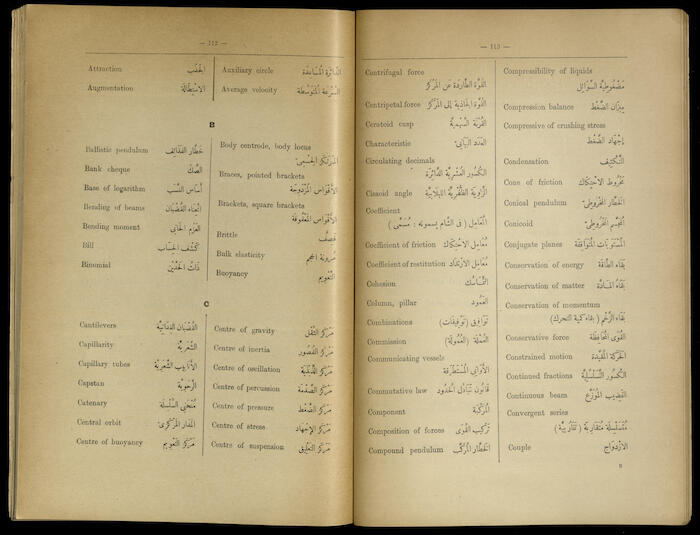 — 112 —
Attraction الجَذْب
Augmentation الاستطالة
Auxiliary circle الدَّائرة المُسَاعِدَة
Average velocity السُّرْعَة المُتَوَسِّطَة
B
Ballistic pendulum خَطَّار القذائِف
Bank cheque الصَّكّ
Base of logarithm أساس النِّسَب
Bending of beams انْحِنَاء القُضْبَان
Bending moment العَزْم الحَانِى
Bill كَشْف الحِسَاب
Binomial ذَات الحَدَّيْن
Body centrode, body locus
المَرْتَكَز الجِسْمِىّ
Braces, pointed brackets
الأقْوَاس المُزْدَوَجَة
Brackets, square brackets
الأقْوَاس المَعْقُوفَة
Brittle قَصِف
Bulk elasticity مُرُونَة الحَجْم
Buoyancy التَّعْوِيم
C
Cantilevers القُضْبَان
Capillarity الشَّعْرِيَّة
Capillary tubes الأنَابِيب الشَّعْرِيَّة
Capstan الرَّحَوِيَّة
Catenary مُنْحَنِى السِّلْسِلَة
Central orbit المَدَار المَرْكَزِىّ
Centre of buoyancy مَرْكَز التَّعْوِيم
Centre of gravity مَرْكَز الثِّقْل
Centre of inertia مَرْكَز القُصُور
Centre of oscillation مَرْكَز الذَّبْذَبَة
Centre of percussion مَرْكَز الصَّدْمَة
Centre of pressure مَرْكَز الضَّغْط
Centre of stress مَرْكَز الإجْهَاد
Centre of suspension مَرْكَز التَّعْلِيق
— 113 —
Centrifugal force
القُوَّة الطَّارِدَة عن المَرْكَز
Centripetal force القُوَّة الجَاذِبَة إلى المَرْكَز
Ceratoid cusp القُرْنَة السَّهْمِيَّة
Characteristic العَدَد البَيَانِىّ
Circulating decimals
الكُسُور العُشْرِيَّة الدَّائِرَة
Cissoid angle الزَّاوِيَة الظُّفْرِيَّة اللَّبْلَابِيَّة
Coefficient
المُعَامِل ( فى الشَّام يسمونه : مُسَمَّى )
Coefficient of friction مُعَامِل الاحْتِكَاك
Coefficient of restitution مُعَامِل الارْتِدَاد
Cohesion التَّمَاسُك
Column, pillar العَمُود
Combinations تَوَافِيق (تَوْفِيقَات)
Commission العُمْلَة (العُمُولَة)
Communicating vessels
الأوَانِى المُسْتَطْرَقَة
Commutative law قَانُون تَبَادُل الحُدُود
Component المُرَكِّبَة
Composition of forces تَرْكِيب القُوَى
Compound pendulum الخَطَّار المُرَكَّب
Compressibility of liquids
مَضْغُوطِيَّة السَّوَائِل
Compression balance مِيزَان الضَّغْط
Compressive of crushing stress
إجْهَاد الضَّغْط
Condensation التَّكْثِيف
Cone of friction مَخْرُوط الاحْتِكَاك
Conical pendulum الخَطَّار المَخْرُوطِىّ
Conicoid المُجَسَّم المَخْرُوطِىّ
Conjugate planes المُسْتَوِيَات المُتَرَافِقَة
Conservation of energy بَقَاء الطَّاقَة
Conservation of matter بَقَاء المَادَّة
Conservation of momentum
بَقَاء الزَّخْم ( بقاء كمية التحرك )
Conservative force القُوَى المُحَافِظَة
Constrained motion الحَرَكَة المُقَيَّدَة
Continued fractions الكُسُور المُتَسَلْسِلَة
Continuous beam القَضِيب المُوَزَّع
Convergent series
مُتَسَلْسِلَة مُتَقَارِبَة ( تَقَارُبِيَّة )
Couple الازْدِوَاج
8